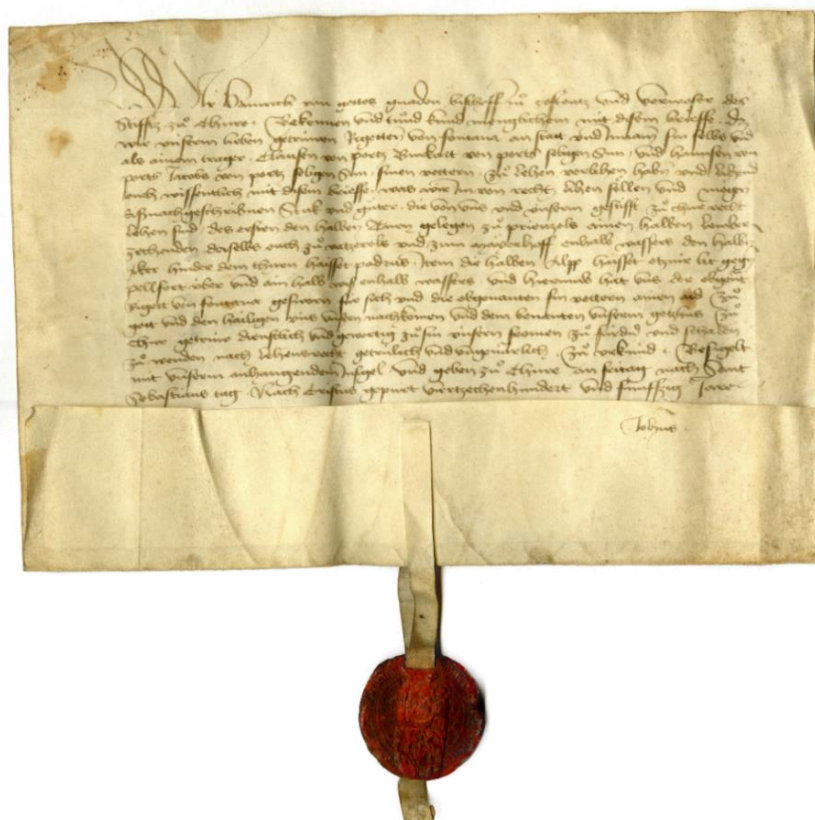 Wir Hainrich von gottes gnaden bischoff zů Costentz und verweser des
Stiffts zů Chure. Bekennen und tůnd kund menglichem mit disem brieffe. Das
wir unserm lieben getrüwen Rigetten von fontana an statt und Innamen sin selbs und
als ainem trager Clausen von portz Burkart von portz seligen Sun, und hannsen von
portz Jacobs von portz seligen Sun sinen vettern zů lehen verlihen haben und lihend
ouch wissentlich mit disem brieffe was wir In von recht lihen sollen und mogen
dis nachgeschribnen Stuk und gůter, die von uns und unserm gestifft zů Chur recht
lehen sind, des ersten den halben gelegen zů prienzols ainen halben
zechenden daselbs ouch zů und zum enhalb wassers den halben
aker hinder dem thurn haisset padrus Item die halben Alpp haisset lit gegen
über und ain halb enhalb wassers und hierumb hat uns der obgenant
Rigett von fontana gesworn für sich und die obgenanten sin vettern ainen aid zů
gott und den hailigen uns unsern nachkomen und dem benanten unserm gotzhus zů
Chur getrüw dienstlich und gewertig zů sin unsern fromen zů fürdern und schaden
zů wenden nach lehensrecht getrülich und ungevarlich. Zů urkund Besigelt
mit unserm anhangendem Insigel Und geben zů Chure an fritag nach Sant
Sebastians tag Nach Cristus gepurt viertzechenhundert und funffzig Jare.